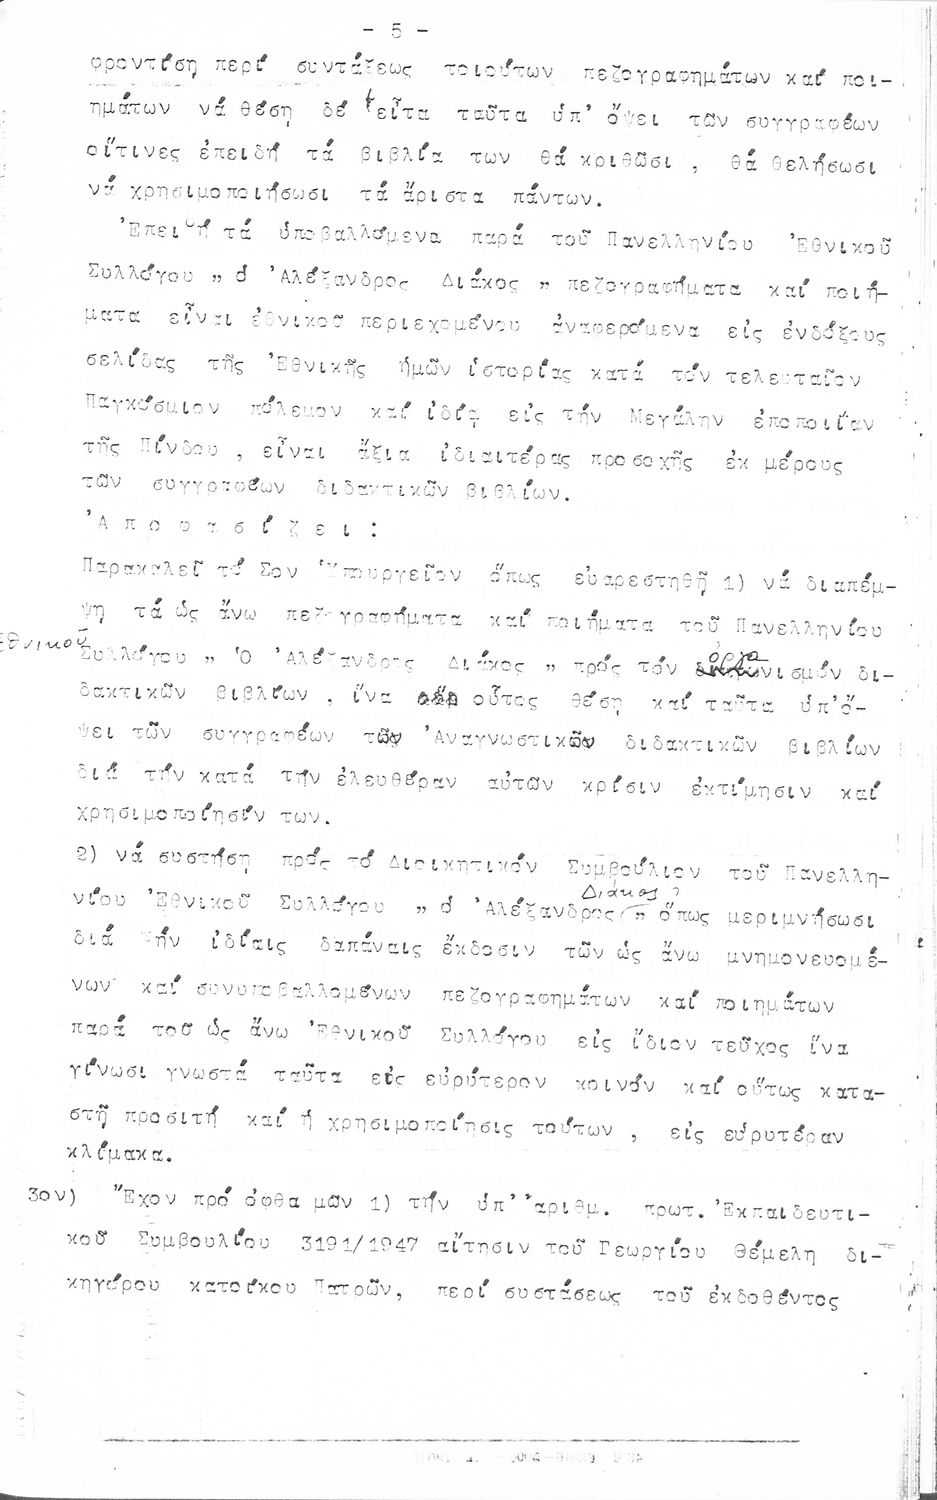 - 5 -
φροντίση περί συντάξεως τοιούτων πεζογραφημάτων καί ποι-
ημάτων νά θέση δέ εἶτα ταῦτα ὑπ' ὄψει τῶν συγγραφέων
οἵτινες ἐπειδή τά βιβλία των θά κριθῶσι , θά θελήσωσι
νά χρησιμοποιήσωσι τά ἄριστα πάντων.
Ἐπειδή τά ὑποβαλλόμενα παρά τοῦ Πανελληνίου Ἐθνικοῦ
Συλλόγου " ὁ Ἀλέξανδρος Διάκος " πεζογραφήματα καί ποιή-
ματα εἶναι ἐθνικοῦ περιεχομένου ἀναφερόμενα εἰς ἐνδόξους
σελίδας τῆς Ἐθνικῆς ἡμῶν ἱστορίας κατά τόν τελευταῖον
Παγκόσμιον πόλεμον καί ἰδίᾳ εἰς τήν Μεγάλην ἐποποιΐαν
τῆς Πίνδου , εἶναι ἄξια ἰδιαιτέρας προσοχῆς ἐκ μέρους
τῶν συγγραφέων διδακτικῶν βιβλίων.
Ἀ π ο φ α σ ί ζ ε ι :
Παρακαλεῖ τό Σον Ὑπουργεῖον ὅπως εὐαρεστηθῇ 1) νά διαπέμ-
ψη τά ὡς ἄνω πεζογραφήματα καί ποιήματα τοῦ Πανελληνίου
Ἐθνικοῦ Συλλόγου " Ὁ Ἀλέξανδρος Διάκος " πρός τόν ὀργανισμόν δι-
δακτικῶν βιβλίων , ἵνα οὗτος θέση καί ταῦτα ὑπ'ὄ-
ψει τῶν συγγραφέων τῶν Ἀναγνωστικῶν διδακτικῶν βιβλίων
διά τήν κατά τήν ἐλευθέραν αὐτῶν κρίσιν ἐκτίμησιν καί
χρησιμοποίησίν των.
2) νά συστήση πρός τό Διοικητικόν Συμβούλιον τοῦ Πανελλη-
νίου Ἐθνικοῦ Συλλόγου " ὁ Ἀλέξανδρος Διάκος " ὅπως μεριμνήσωσι
διά τήν ἰδίαις δαπάναις ἔκδοσιν τῶν ὡς ἄνω μνημονευομέ-
νων καί συνυποβαλλομένων πεζογραφημάτων καί ποιημάτων
παρά τοῦ ὡς ἄνω Ἐθνικοῦ Συλλόγου εἰς ἴδιον τεῦχος ἵνα
γίνωσι γνωστά ταῦτα εἰς εὐρύτερον κοινόν καί οὕτως κατα-
στῇ προσιτή καί ἡ χρησιμοποίησις τούτων , εἰς εὐρυτέραν
κλίμακα.
3ον) Ἔχον πρό ὀφθαμῶν 1) τήν ὑπ' ἀριθμ. πρωτ. Ἐκπαιδευτι-
κοῦ Συμβουλίου 3191/1947 αἴτησιν τοῦ Γεωργίου Θέμελη δι-
κηγόρου κατοίκου Πατρῶν, περί συστάσεως τοῦ ἐκδοθέντος